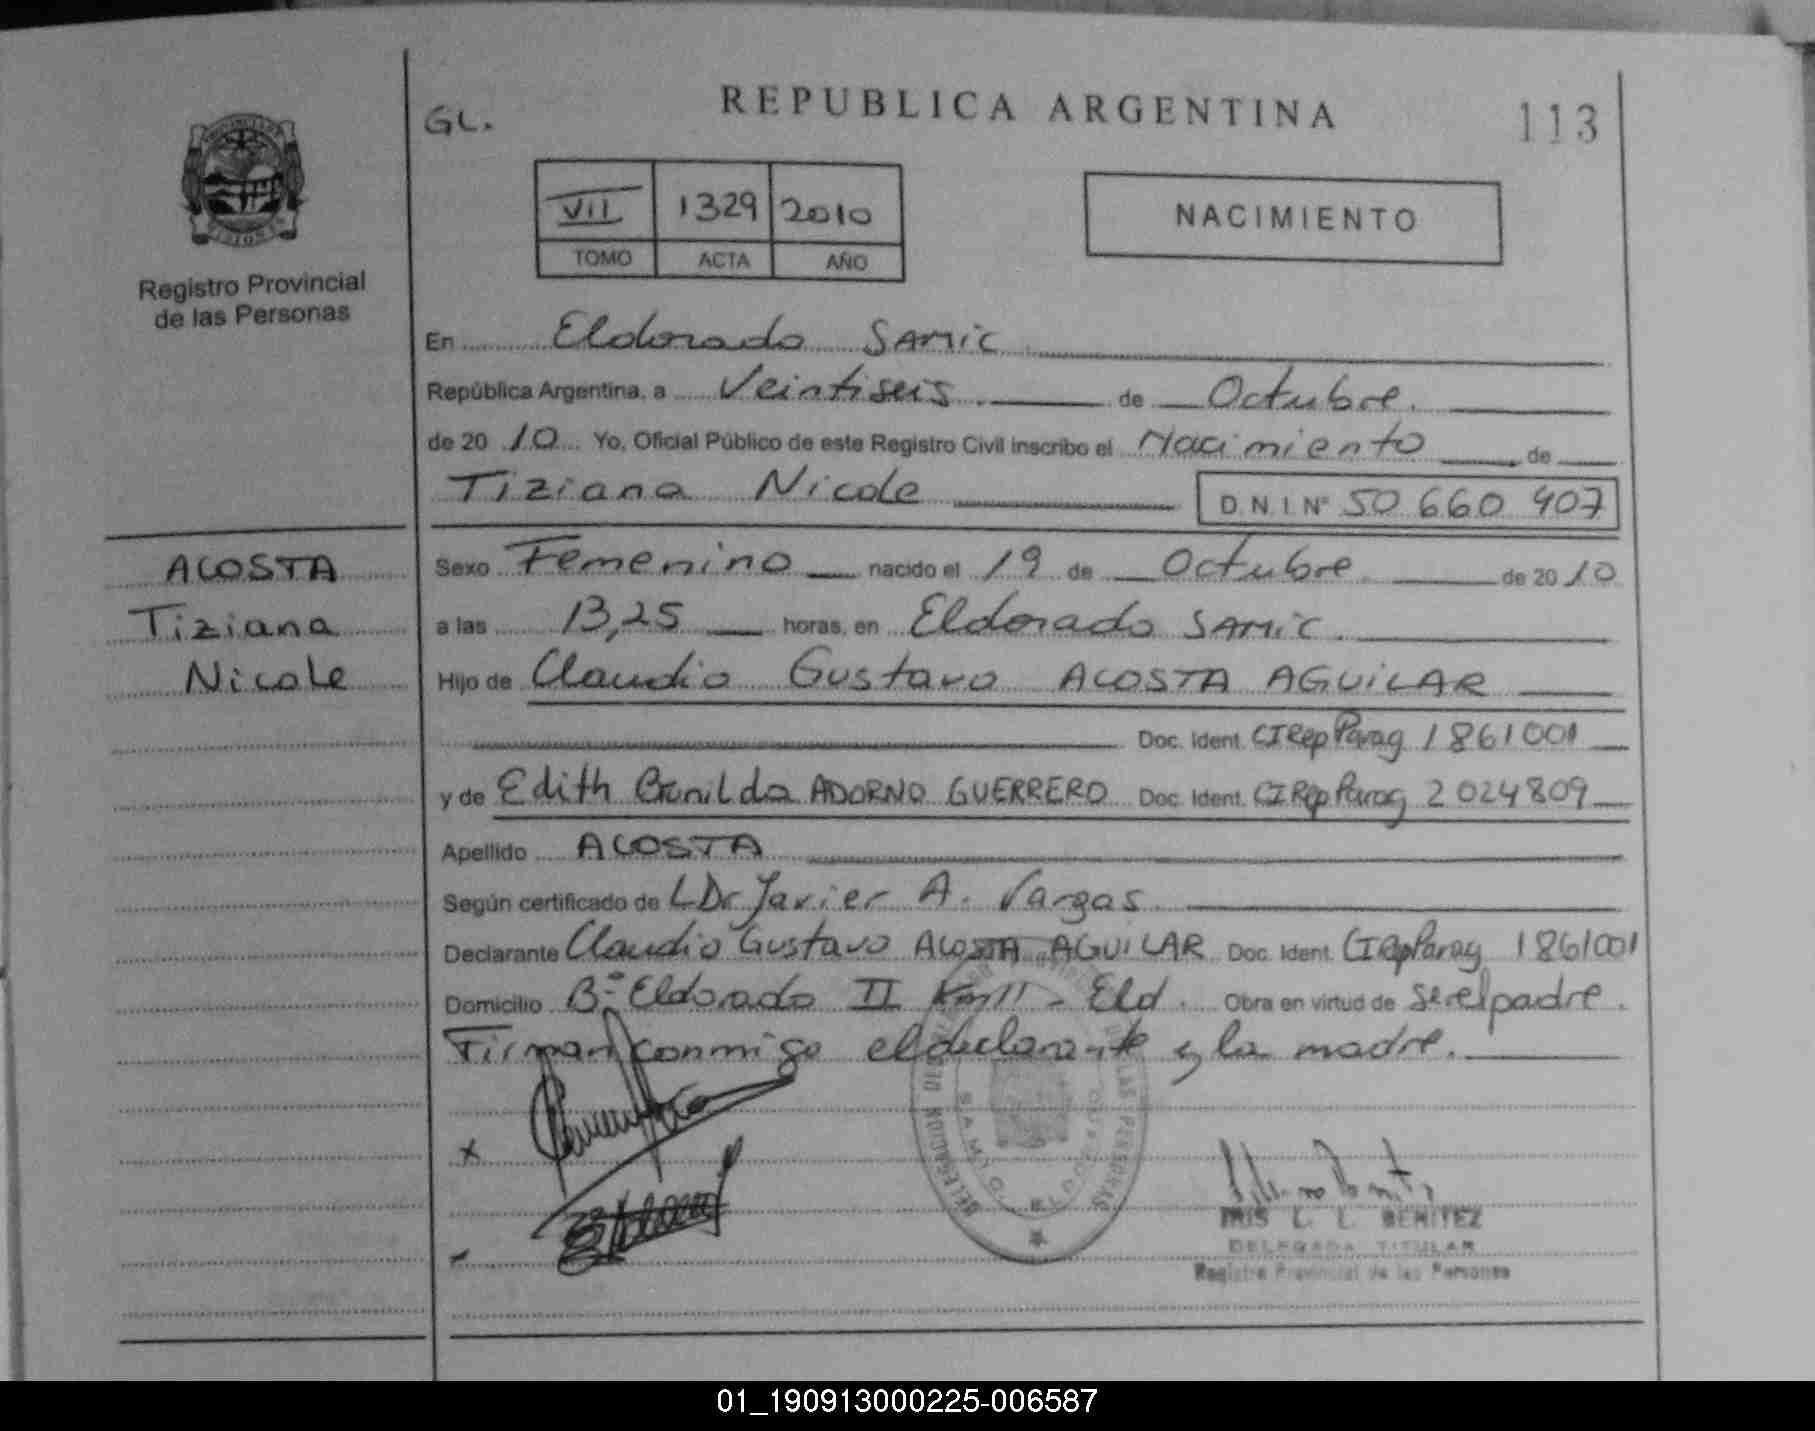 REPUBLICA ARGENTINA
GL.
113
VII 1329 2010
TOMO ACTA AÑO
NACIMIENTO
Registro Provincial
de las Personas
En Eldorado SAMIC
República Argentina, a Veintiseis de Octubre.
de 20 10 Yo, Oficial Público de este Registro Civil inscribo el Nacimiento de
Tiziana Nicole D.N.I. Nº 50 660 407
ACOSTA
Tiziana
Nicole
Sexo Femenino nacido el 19 de Octubre de 20 10
a las 13,25 horas, en Eldorado SAMIC.
Hijo de Claudio Gustavo ACOSTA AGUILAR
Doc. Ident. CIRepParag 1861001
y de Edith ADORNO GUERRERO Doc. Ident. CIRepParag 2024809
Apellido ACOSTA
Según certificado de Dr Javier A. Vargas
Declarante Claudio Gustavo ACOSTA AGUILAR Doc. Ident. CIRepParag 1861001
Domicilio Bº Eldorado II Km 11 - Eld. Obra en virtud de ser el padre.
Firman conmigo el declarante y la madre.
IRIS L. L. BENITEZ
DELEGADA TITULAR
Registro Provincial de las Personas
01_190913000225-006587